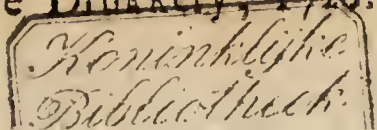 Koninklijke
Bibliotheek